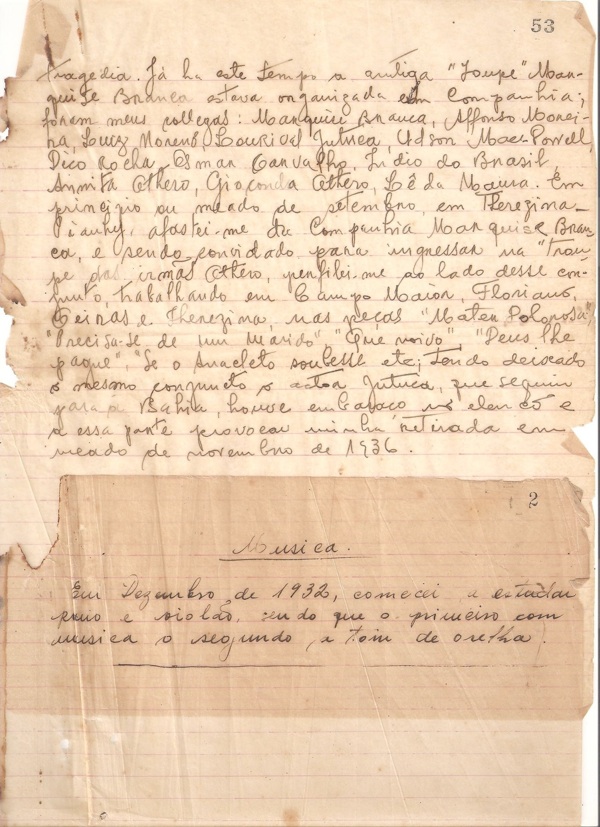 53
tragedia. Já ha este tempo a antiga "Toupe" Mar-
quise Branca estava organizada em Companhia;
foram meus collegas: Marquise Branca, Affonso Morei-
ra, Luiz Moreno, Lourival Jutuca, Udson Mac-Powell,
Dico Rocha, Osman Carvalho, Indio do Brasil,
Annita Othero, Gioconda Othero, Lêda Maura. Em
principio ou meado de setembro, em Therezina-
Piauhy, afastei-me da Companhia Marquise Bran-
ca, e sendo convidado para ingressar na "Trou-
pe das irmãs Othero, perfilei-me ao lado desse con-
junto, trabalhando em Campo Maior, Floriano,
Oeiras e Therezina, nas peças "Mater Dolorosa",
"Precisa-se de um Marido" "Que noivo", "Deus lhe
pague", "Se o Anacleto soubesse etc; Tendo
o mesmo conjuncto o actor Jutuca, que seguiu
para a Bahia, houve embaraço no elenco e
a essa parte provocar minha retirada em
meado de novembro de 1936.
2
Musica.
Em Dezembro de 1932, comecei a estudar
e violão, sendo que o primeiro com
musica o segundo a tom de orelha.